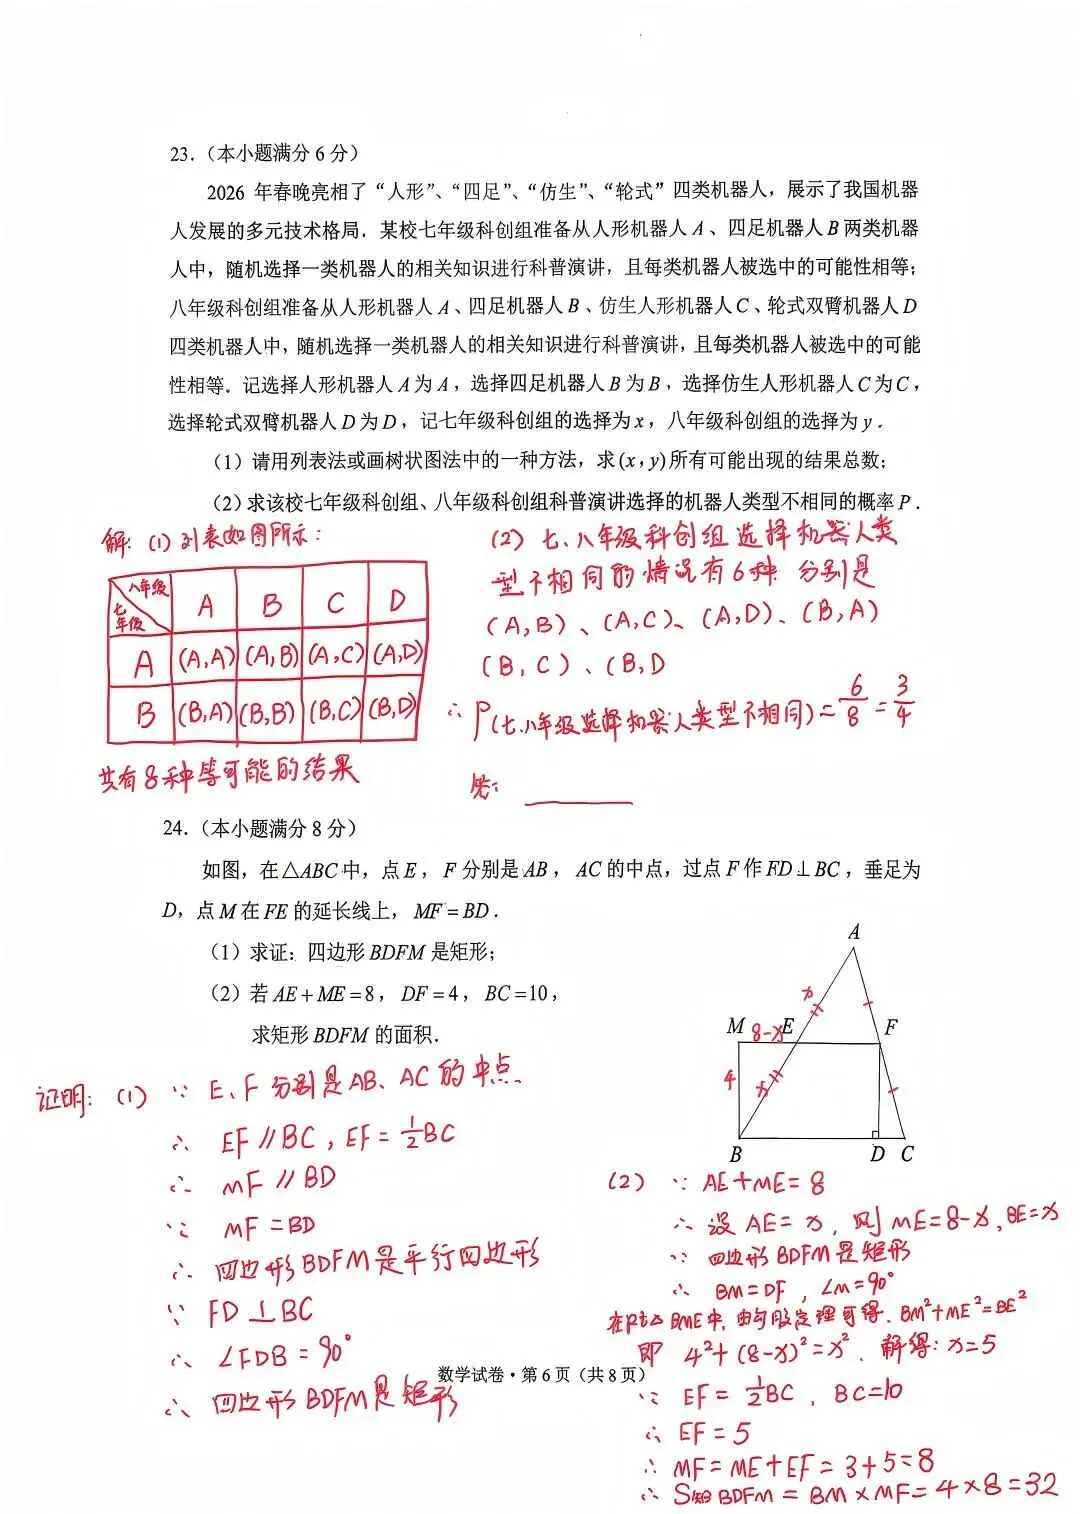 23.（本小题满分 6 分）
2026 年春晚亮相了“人形”、“四足”、“仿生”、“轮式”四类机器人，展示了我国机器
人发展的多元技术格局．某校七年级科创组准备从人形机器人 A、四足机器人 B 两类机器
人中，随机选择一类机器人的相关知识进行科普演讲，且每类机器人被选中的可能性相等；
八年级科创组准备从人形机器人 A、四足机器人 B、仿生人形机器人 C、轮式双臂机器人 D
四类机器人中，随机选择一类机器人的相关知识进行科普演讲，且每类机器人被选中的可能
性相等．记选择人形机器人 A 为 A，选择四足机器人 B 为 B，选择仿生人形机器人 C 为 C，
选择轮式双臂机器人 D 为 D，记七年级科创组的选择为 x，八年级科创组的选择为 y．
（1）请用列表法或画树状图法中的一种方法，求 (x, y) 所有可能出现的结果总数；
（2）求该校七年级科创组、八年级科创组科普演讲选择的机器人类型不相同的概率 P．
解: (1) 列表如图所示:
八年级 七年级 A B C D
A (A,A) (A,B) (A,C) (A,D)
B (B,A) (B,B) (B,C) (B,D)
共有8种等可能的结果
(2) 七、八年级科创组选择机器人类
型不相同的情况有6种. 分别是
(A,B)、(A,C)、(A,D)、(B,A)
(B,C)、(B,D
∴ P(七、八年级选择机器人类型不相同) = 6/8 = 3/4
答:
24.（本小题满分 8 分）
如图，在 △ABC 中，点 E，F 分别是 AB，AC 的中点，过点 F 作 FD⊥BC，垂足为
D，点 M 在 FE 的延长线上，MF＝BD．
（1）求证：四边形 BDFM 是矩形；
（2）若 AE＋ME＝8，DF＝4，BC＝10，
求矩形 BDFM 的面积．
A
x
M 8-x E F
4 x
B D C
证明: (1) ∵ E、F 分别是AB、AC的中点
∴ EF∥BC, EF=1/2BC
∴ MF∥BD
∵ MF=BD
∴ 四边形BDFM是平行四边形
∵ FD⊥BC
∴ ∠FDB=90°
∴ 四边形BDFM是矩形
(2) ∵ AE+ME=8
∴ 设AE=x, 则ME=8-x, BE=x
∵ 四边形BDFM是矩形
∴ BM=DF, ∠M=90°
在Rt△BME中, 由勾股定理可得. BM²+ME²=BE²
即 4²+(8-x)²=x². 解得: x=5
∵ EF=1/2BC, BC=10
∴ EF=5
∴ MF=ME+EF=3+5=8
∴ S矩BDFM=BM×MF=4×8=32
数学试卷·第 6 页（共 8 页）